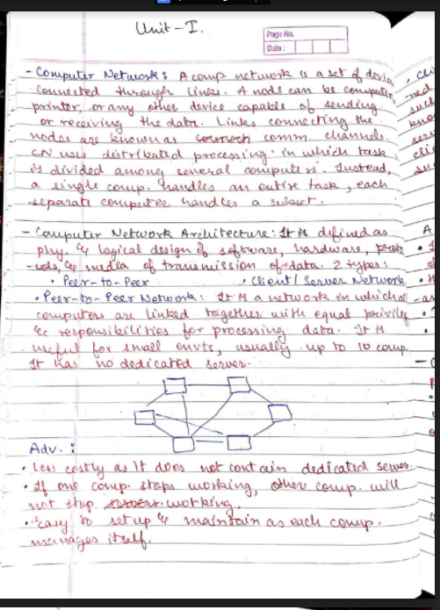 Unit-I.
Page No.
Date:
- Computer Network: A comp network is a set of devices
connected through links. A node can be computer,
printer, or any other device capable of sending
or receiving the data. Links connecting the
nodes are known as comm. channels.
CN uses distributed processing in which task
is divided among several computers. Instead,
a single comp. handles an entire task, each
separate computer handles a subset.
- Computer Network Architecture: It is defined as
phy. & logical design of software, hardware, proto
-cols, & media of transmission of data. 2 types:
• Peer-to-Peer • Client/Server Network
• Peer-to-Peer Network: It is a network in which all
computers are linked together with equal privileg
& responsibilities for processing data. It is
useful for small envts, usually up to 10 comp.
It has no dedicated server.
Adv. :
• Less costly as it does not contain dedicated server.
• If one comp. stops working, other comp. will
not stop working.
• Easy to set up & maintain as each comp.
manages itself.